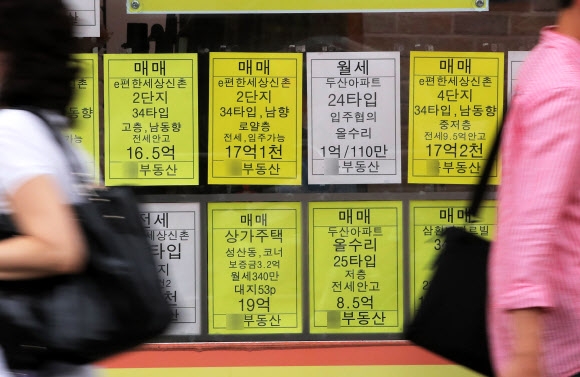 매매
e편한세상신촌
2단지
34타입
고층, 남동향
16.5억
부동산
매매
e편한세상신촌
2단지
34타입, 남향
로얄층
전세, 입주가능
17억1천
부동산
월세
두산아파트
24타입
입주협의
올수리
1억/110만
부동산
매매
e편한세상신촌
4단지
34타입, 남향
중저층
전세9.5억안고
17억2천
부동산
전세
세상신촌
타입
매매
상가주택
성산동, 코너
보증금3.2억
월세340만
대지53p
19억
부동산
매매
두산아파트
올수리
25타입
저층
전세안고
8.5억
부동산
매매